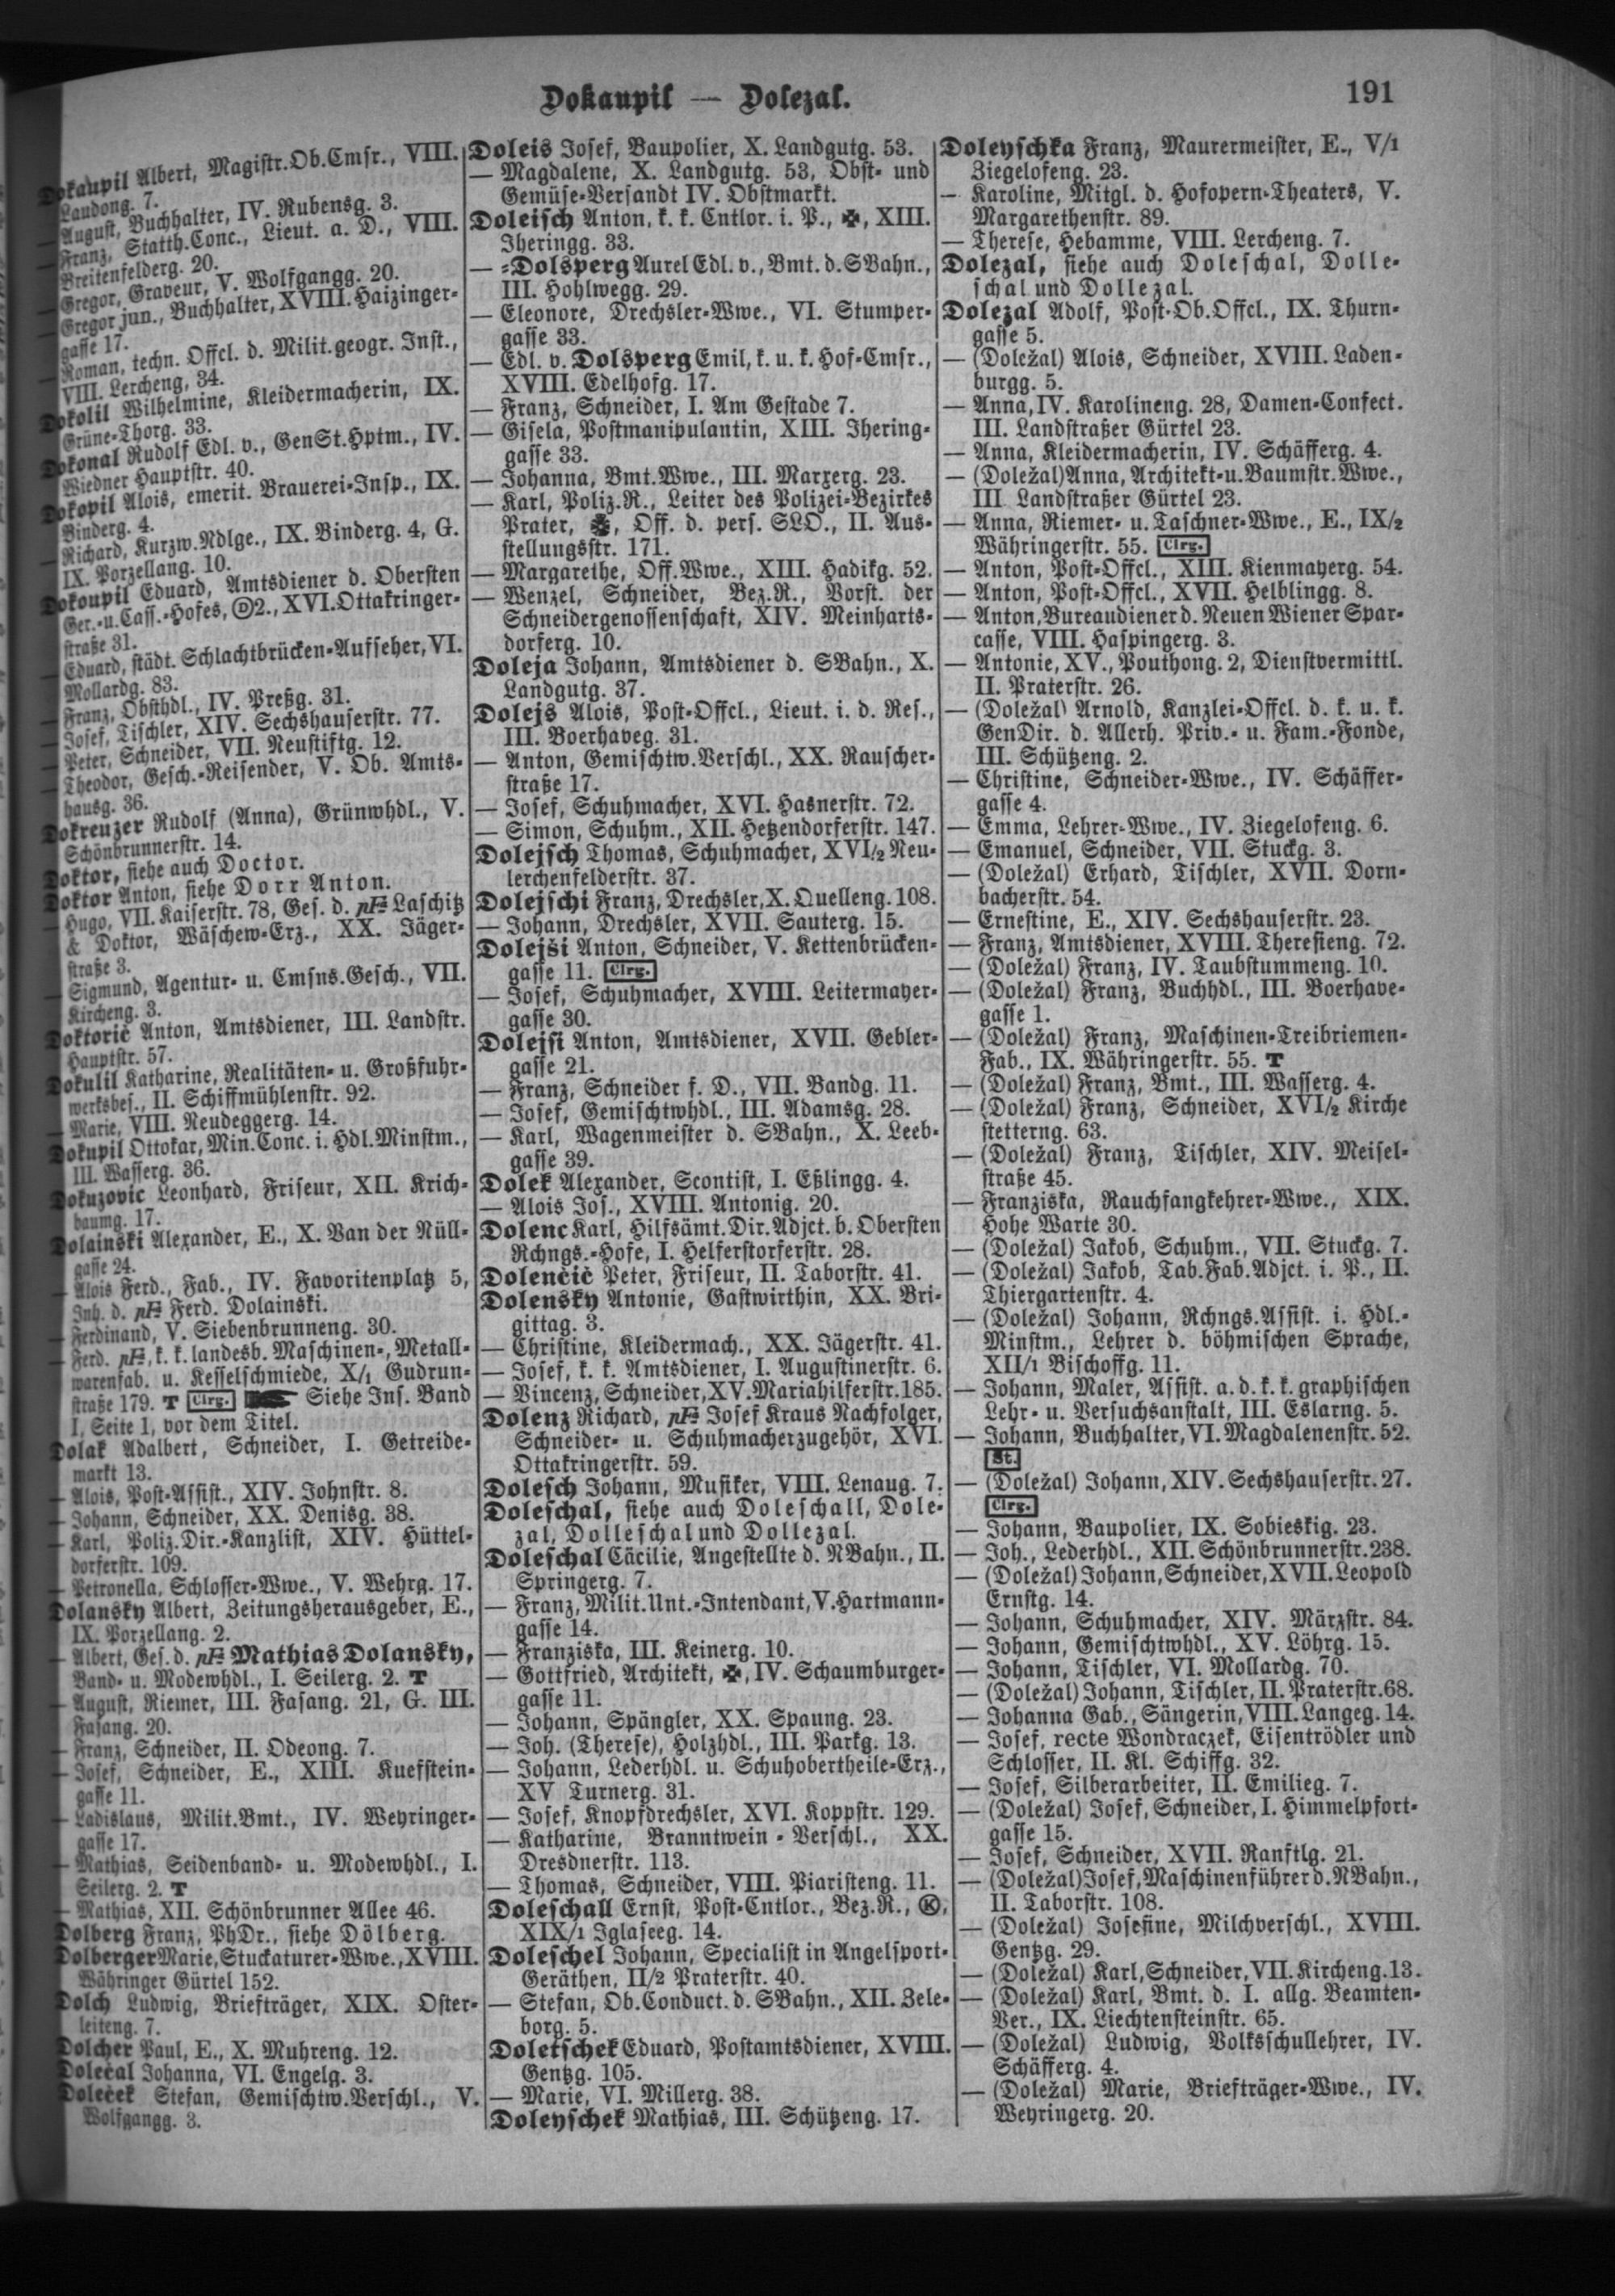 Dokaupil — Dolezal.
191
Dokaupil Albert, Magistr.Ob.Cmsr., VIII.
Laudong. 7.
— August, Buchhalter, IV. Rubensg. 3.
— Franz, Statth.Conc., Lieut. a. D., VIII.
Breitenfelderg. 20.
— Gregor, Graveur, V. Wolfgangg. 20.
— Gregor jun., Buchhalter, XVIII. Haizinger-
gasse 17.
— Roman, techn. Offcl. d. Milit.geogr. Inst.,
VIII. Lercheng. 34.
Dokolil Wilhelmine, Kleidermacherin, IX.
Grüne-Thorg. 33.
Dokonal Rudolf Edl. v., GenSt.Hptm., IV.
Wiedner Hauptstr. 40.
Dokopil Alois, emerit. Brauerei-Insp., IX.
Binderg. 4.
— Richard, Kurzw.Ndlge., IX. Binderg. 4, G.
IX. Porzellang. 10.
Dokoupil Eduard, Amtsdiener d. Obersten
Ger.-u.Cass.-Hofes, Ⓓ2., XVI. Ottakringer-
straße 31.
— Eduard, städt. Schlachtbrücken-Aufseher, VI.
Mollardg. 83.
— Franz, Obsthdl., IV. Preßg. 31.
— Josef, Tischler, XIV. Sechshauserstr. 77.
— Peter, Schneider, VII. Neustiftg. 12.
— Theodor, Gesch.-Reisender, V. Ob. Amts-
hausg. 36.
Dokreuzer Rudolf (Anna), Grünwhdl., V.
Schönbrunnerstr. 14.
Doktor, siehe auch Doctor.
Doktor Anton, siehe Dorr Anton.
— Hugo, VII. Kaiserstr. 78, Ges. d. pF Laschitz
& Doktor, Wäschew-Erz., XX. Jäger-
straße 3.
— Sigmund, Agentur- u. Cmsns.Gesch., VII.
Kircheng. 3.
Doktorić Anton, Amtsdiener, III. Landstr.
Hauptstr. 57.
Dokulil Katharine, Realitäten- u. Großfuhr-
werksbes., II. Schiffmühlenstr. 92.
— Marie, VIII. Neudeggerg. 14.
Dokupil Ottokar, Min.Conc. i. Hdl.Minstm.,
III. Wasserg. 36.
Dokuzovic Leonhard, Friseur, XII. Krich-
baumg. 17.
Dolainski Alexander, E., X. Van der Nüll-
gasse 24.
— Alois Ferd., Fab., IV. Favoritenplatz 5,
Inh. d. pF Ferd. Dolainski.
— Ferdinand, V. Siebenbrunneng. 30.
— Ferd. pF, k. k. landesb. Maschinen-, Metall-
warenfab. u. Kesselschmiede, X/1 Gudrun-
straße 179. T Clrg. Siehe Ins. Band
I, Seite 1, vor dem Titel.
Dolak Adalbert, Schneider, I. Getreide-
markt 13.
— Alois, Post-Assist., XIV. Johnstr. 8.
— Johann, Schneider, XX. Denisg. 38.
— Karl, Poliz.Dir.-Kanzlist, XIV. Hüttel-
dorferstr. 109.
— Petronella, Schlosser-Wwe., V. Wehrg. 17.
Dolansky Albert, Zeitungsherausgeber, E.,
IX. Porzellang. 2.
— Albert, Ges. d. pF Mathias Dolansky,
Band- u. Modewhdl., I. Seilerg. 2. T
— August, Riemer, III. Fasang. 21, G. III.
Fasang. 20.
— Franz, Schneider, II. Odeong. 7.
— Josef, Schneider, E., XIII. Kuefstein-
gasse 11.
— Ladislaus, Milit.Bmt., IV. Weyringer-
gasse 17.
— Mathias, Seidenband- u. Modewhdl., I.
Seilerg. 2. T
— Mathias, XII. Schönbrunner Allee 46.
Dolberg Franz, PhDr., siehe Dölberg.
Dolberger Marie, Stuckaturer-Wwe., XVIII.
Währinger Gürtel 152.
Dolch Ludwig, Briefträger, XIX. Oster-
leiteng. 7.
Dolcher Paul, E., X. Muhreng. 12.
Dolečal Johanna, VI. Engelg. 3.
Doleček Stefan, Gemischtw.Verschl., V.
Wolfgangg. 3.
Doleis Josef, Baupolier, X. Landgutg. 53.
— Magdalene, X. Landgutg. 53, Obst- und
Gemüse-Versandt IV. Obstmarkt.
Doleisch Anton, k. k. Cntlor. i. P., ✠, XIII.
Iheringg. 33.
— -Dolsperg Aurel Edl. v., Bmt. d. SBahn.,
III. Hohlwegg. 29.
— Eleonore, Drechsler-Wwe., VI. Stumper-
gasse 33.
— Edl. v. Dolsperg Emil, k. u. k. Hof-Cmsr.,
XVIII. Edelhofg. 17.
— Franz, Schneider, I. Am Gestade 7.
— Gisela, Postmanipulantin, XIII. Ihering-
gasse 33.
— Johanna, Bmt.Wwe., III. Marxerg. 23.
— Karl, Poliz.R., Leiter des Polizei-Bezirkes
Prater, , Off. d. pers. SLO., II. Aus-
stellungsstr. 171.
— Margarethe, Off.Wwe., XIII. Hadikg. 52.
— Wenzel, Schneider, Bez.R., Vorst. der
Schneidergenossenschaft, XIV. Meinharts-
dorferg. 10.
Doleja Johann, Amtsdiener d. SBahn., X.
Landgutg. 37.
Dolejs Alois, Post-Offcl., Lieut. i. d. Res.,
III. Boerhaveg. 31.
— Anton, Gemischtw.Verschl., XX. Rauscher-
straße 17.
— Josef, Schuhmacher, XVI. Hasnerstr. 72.
— Simon, Schuhm., XII. Hetzendorferstr. 147.
Dolejsch Thomas, Schuhmacher, XVI/2 Neu-
lerchenfelderstr. 37.
Dolejschi Franz, Drechsler, X. Quelleng. 108.
— Johann, Drechsler, XVII. Sauterg. 15.
Dolejši Anton, Schneider, V. Kettenbrücken-
gasse 11. Clrg.
— Josef, Schuhmacher, XVIII. Leitermayer-
gasse 30.
Dolejsi Anton, Amtsdiener, XVII. Gebler-
gasse 21.
— Franz, Schneider f. D., VII. Bandg. 11.
— Josef, Gemischtwhdl., III. Adamsg. 28.
— Karl, Wagenmeister d. SBahn., X. Leeb-
gasse 39.
Dolek Alexander, Scontist, I. Eßlingg. 4.
— Alois Jos., XVIII. Antonig. 20.
Dolenc Karl, Hilfsämt.Dir.Adjct. b. Obersten
Rchngs.-Hofe, I. Helferstorferstr. 28.
Dolenčič Peter, Friseur, II. Taborstr. 41.
Dolensky Antonie, Gastwirthin, XX. Bri-
gittag. 3.
— Christine, Kleidermach., XX. Jägerstr. 41.
— Josef, k. k. Amtsdiener, I. Augustinerstr. 6.
— Vincenz, Schneider, XV. Mariahilferstr. 185.
Dolenz Richard, pF Josef Kraus Nachfolger,
Schneider- u. Schuhmacherzugehör, XVI.
Ottakringerstr. 59.
Dolesch Johann, Musiker, VIII. Lenaug. 7.
Doleschal, siehe auch Doleschall, Dole-
zal, Dolleschal und Dollezal.
Doleschal Cäcilie, Angestellte d. NBahn., II.
Springerg. 7.
— Franz, Milit.Unt.-Intendant, V. Hartmann-
gasse 14.
— Franziska, III. Keinerg. 10.
— Gottfried, Architekt, ✠, IV. Schaumburger-
gasse 11.
— Johann, Spängler, XX. Spaung. 23.
— Joh. (Therese), Holzhdl., III. Parkg. 13.
— Johann, Lederhdl. u. Schuhobertheile-Erz.,
XV Turnerg. 31.
— Josef, Knopfdrechsler, XVI. Koppstr. 129.
— Katharine, Branntwein-Verschl., XX.
Dresdnerstr. 113.
— Thomas, Schneider, VIII. Piaristeng. 11.
Doleschall Ernst, Post-Cntlor., Bez.R., Ⓚ,
XIX/1 Iglaseeg. 14.
Doleschel Johann, Specialist in Angelsport-
Geräthen, II/2 Praterstr. 40.
— Stefan, Ob.Conduct. d. SBahn., XII. Zele-
borg. 5.
Doletschek Eduard, Postamtsdiener, XVIII.
Gentzg. 105.
— Marie, VI. Millerg. 38.
Doleyschek Mathias, III. Schützeng. 17.
Doleyschka Franz, Maurermeister, E., V/1
Ziegelofeng. 23.
— Karoline, Mitgl. d. Hofopern-Theaters, V.
Margarethenstr. 89.
— Therese, Hebamme, VIII. Lercheng. 7.
Dolezal, siehe auch Doleschal, Dolle-
schal und Dollezal.
Dolezal Adolf, Post-Ob.Offcl., IX. Thurn-
gasse 5.
— (Doležal) Alois, Schneider, XVIII. Laden-
burgg. 5.
— Anna, IV. Karolineng. 28, Damen-Confect.
III. Landstraßer Gürtel 23.
— Anna, Kleidermacherin, IV. Schäfferg. 4.
— (Doležal) Anna, Architekt-u.Baumstr.Wwe.,
III Landstraßer Gürtel 23.
— Anna, Riemer- u. Taschner-Wwe., E., IX/2
Währingerstr. 55. Clrg.
— Anton, Post-Offcl., XIII. Kienmayerg. 54.
— Anton, Post-Offcl., XVII. Helblingg. 8.
— Anton, Bureaudiener d. Neuen Wiener Spar-
casse, VIII. Haspingerg. 3.
— Antonie, XV., Pouthong. 2, Dienstvermittl.
II. Praterstr. 26.
— (Doležal) Arnold, Kanzlei-Offcl. d. k. u. k.
GenDir. d. Allerh. Priv.- u. Fam.-Fonde,
III. Schützeng. 2.
— Christine, Schneider-Wwe., IV. Schäffer-
gasse 4.
— Emma, Lehrer-Wwe., IV. Ziegelofeng. 6.
— Emanuel, Schneider, VII. Stuckg. 3.
— (Doležal) Erhard, Tischler, XVII. Dorn-
bacherstr. 54.
— Ernestine, E., XIV. Sechshauserstr. 23.
— Franz, Amtsdiener, XVIII. Theresieng. 72.
— (Doležal) Franz, IV. Taubstummeng. 10.
— (Doležal) Franz, Buchhdl., III. Boerhave-
gasse 1.
— (Doležal) Franz, Maschinen-Treibriemen-
Fab., IX. Währingerstr. 55. T
— (Doležal) Franz, Bmt., III. Wasserg. 4.
— (Doležal) Franz, Schneider, XVI/2 Kirche
stetterng. 63.
— (Doležal) Franz, Tischler, XIV. Meisel-
straße 45.
— Franziska, Rauchfangkehrer-Wwe., XIX.
Hohe Warte 30.
— (Doležal) Jakob, Schuhm., VII. Stuckg. 7.
— (Doležal) Jakob, Tab.Fab.Adjct. i. P., II.
Thiergartenstr. 4.
— (Doležal) Johann, Rchngs.Assist. i. Hdl.-
Minstm., Lehrer d. böhmischen Sprache,
XII/1 Bischoffg. 11.
— Johann, Maler, Assist. a. d. k. k. graphischen
Lehr- u. Versuchsanstalt, III. Eslarng. 5.
— Johann, Buchhalter, VI. Magdalenenstr. 52.
St.
— (Doležal) Johann, XIV. Sechshauserstr. 27.
Clrg.
— Johann, Baupolier, IX. Sobieskig. 23.
— Joh., Lederhdl., XII. Schönbrunnerstr. 238.
— (Doležal) Johann, Schneider, XVII. Leopold
Ernstg. 14.
— Johann, Schuhmacher, XIV. Märzstr. 84.
— Johann, Gemischtwhdl., XV. Löhrg. 15.
— Johann, Tischler, VI. Mollardg. 70.
— (Doležal) Johann, Tischler, II. Praterstr. 68.
— Johanna Gab., Sängerin, VIII. Langeg. 14.
— Josef, recte Wondraczek, Eisentrödler und
Schlosser, II. Kl. Schiffg. 32.
— Josef, Silberarbeiter, II. Emilieg. 7.
— (Doležal) Josef, Schneider, I. Himmelpfort-
gasse 15.
— Josef, Schneider, XVII. Ranftlg. 21.
— (Doležal) Josef, Maschinenführer d. NBahn.,
II. Taborstr. 108.
— (Doležal) Josefine, Milchverschl., XVIII.
Gentzg. 29.
— (Doležal) Karl, Schneider, VII. Kircheng. 13.
— (Doležal) Karl, Bmt. d. I. allg. Beamten-
Ver., IX. Liechtensteinstr. 65.
— (Doležal) Ludwig, Volksschullehrer, IV.
Schäfferg. 4.
— (Doležal) Marie, Briefträger-Wwe., IV.
Weyringerg. 20.